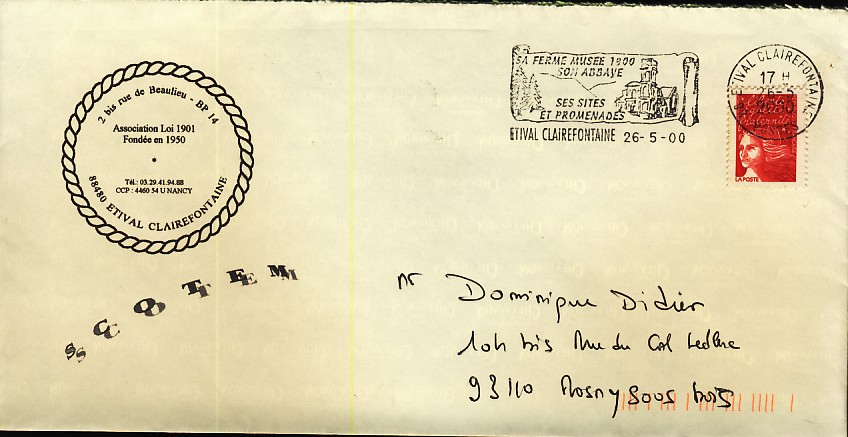 2 bis rue de Beaulieu - BP 14
Association Loi 1901
Fondée en 1950
Tél.: 03.29.41.94.88
CCP : 4460 54 U NANCY
88480 ETIVAL CLAIREFONTAINE
SCOTEM
SA FERME MUSEE 1900
SON ABBAYE
SES SITES
ET PROMENADES
ETIVAL CLAIREFONTAINE 26-5-00
ETIVAL CLAIREFONTAINE
17 H
26-5
LA POSTE
Mr Dominique Didier
104 bis Rue du Cal Leclerc
93110 Rosny sous bois